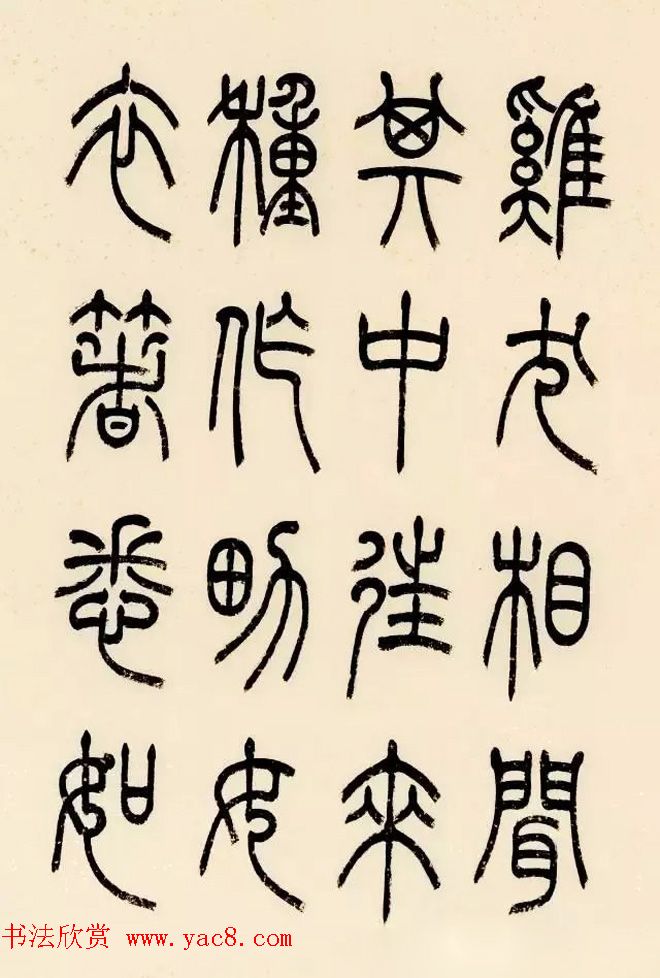 雞犬相聞
其中往來
種作男女
衣箸悉如
书法欣赏 www.yac8.com